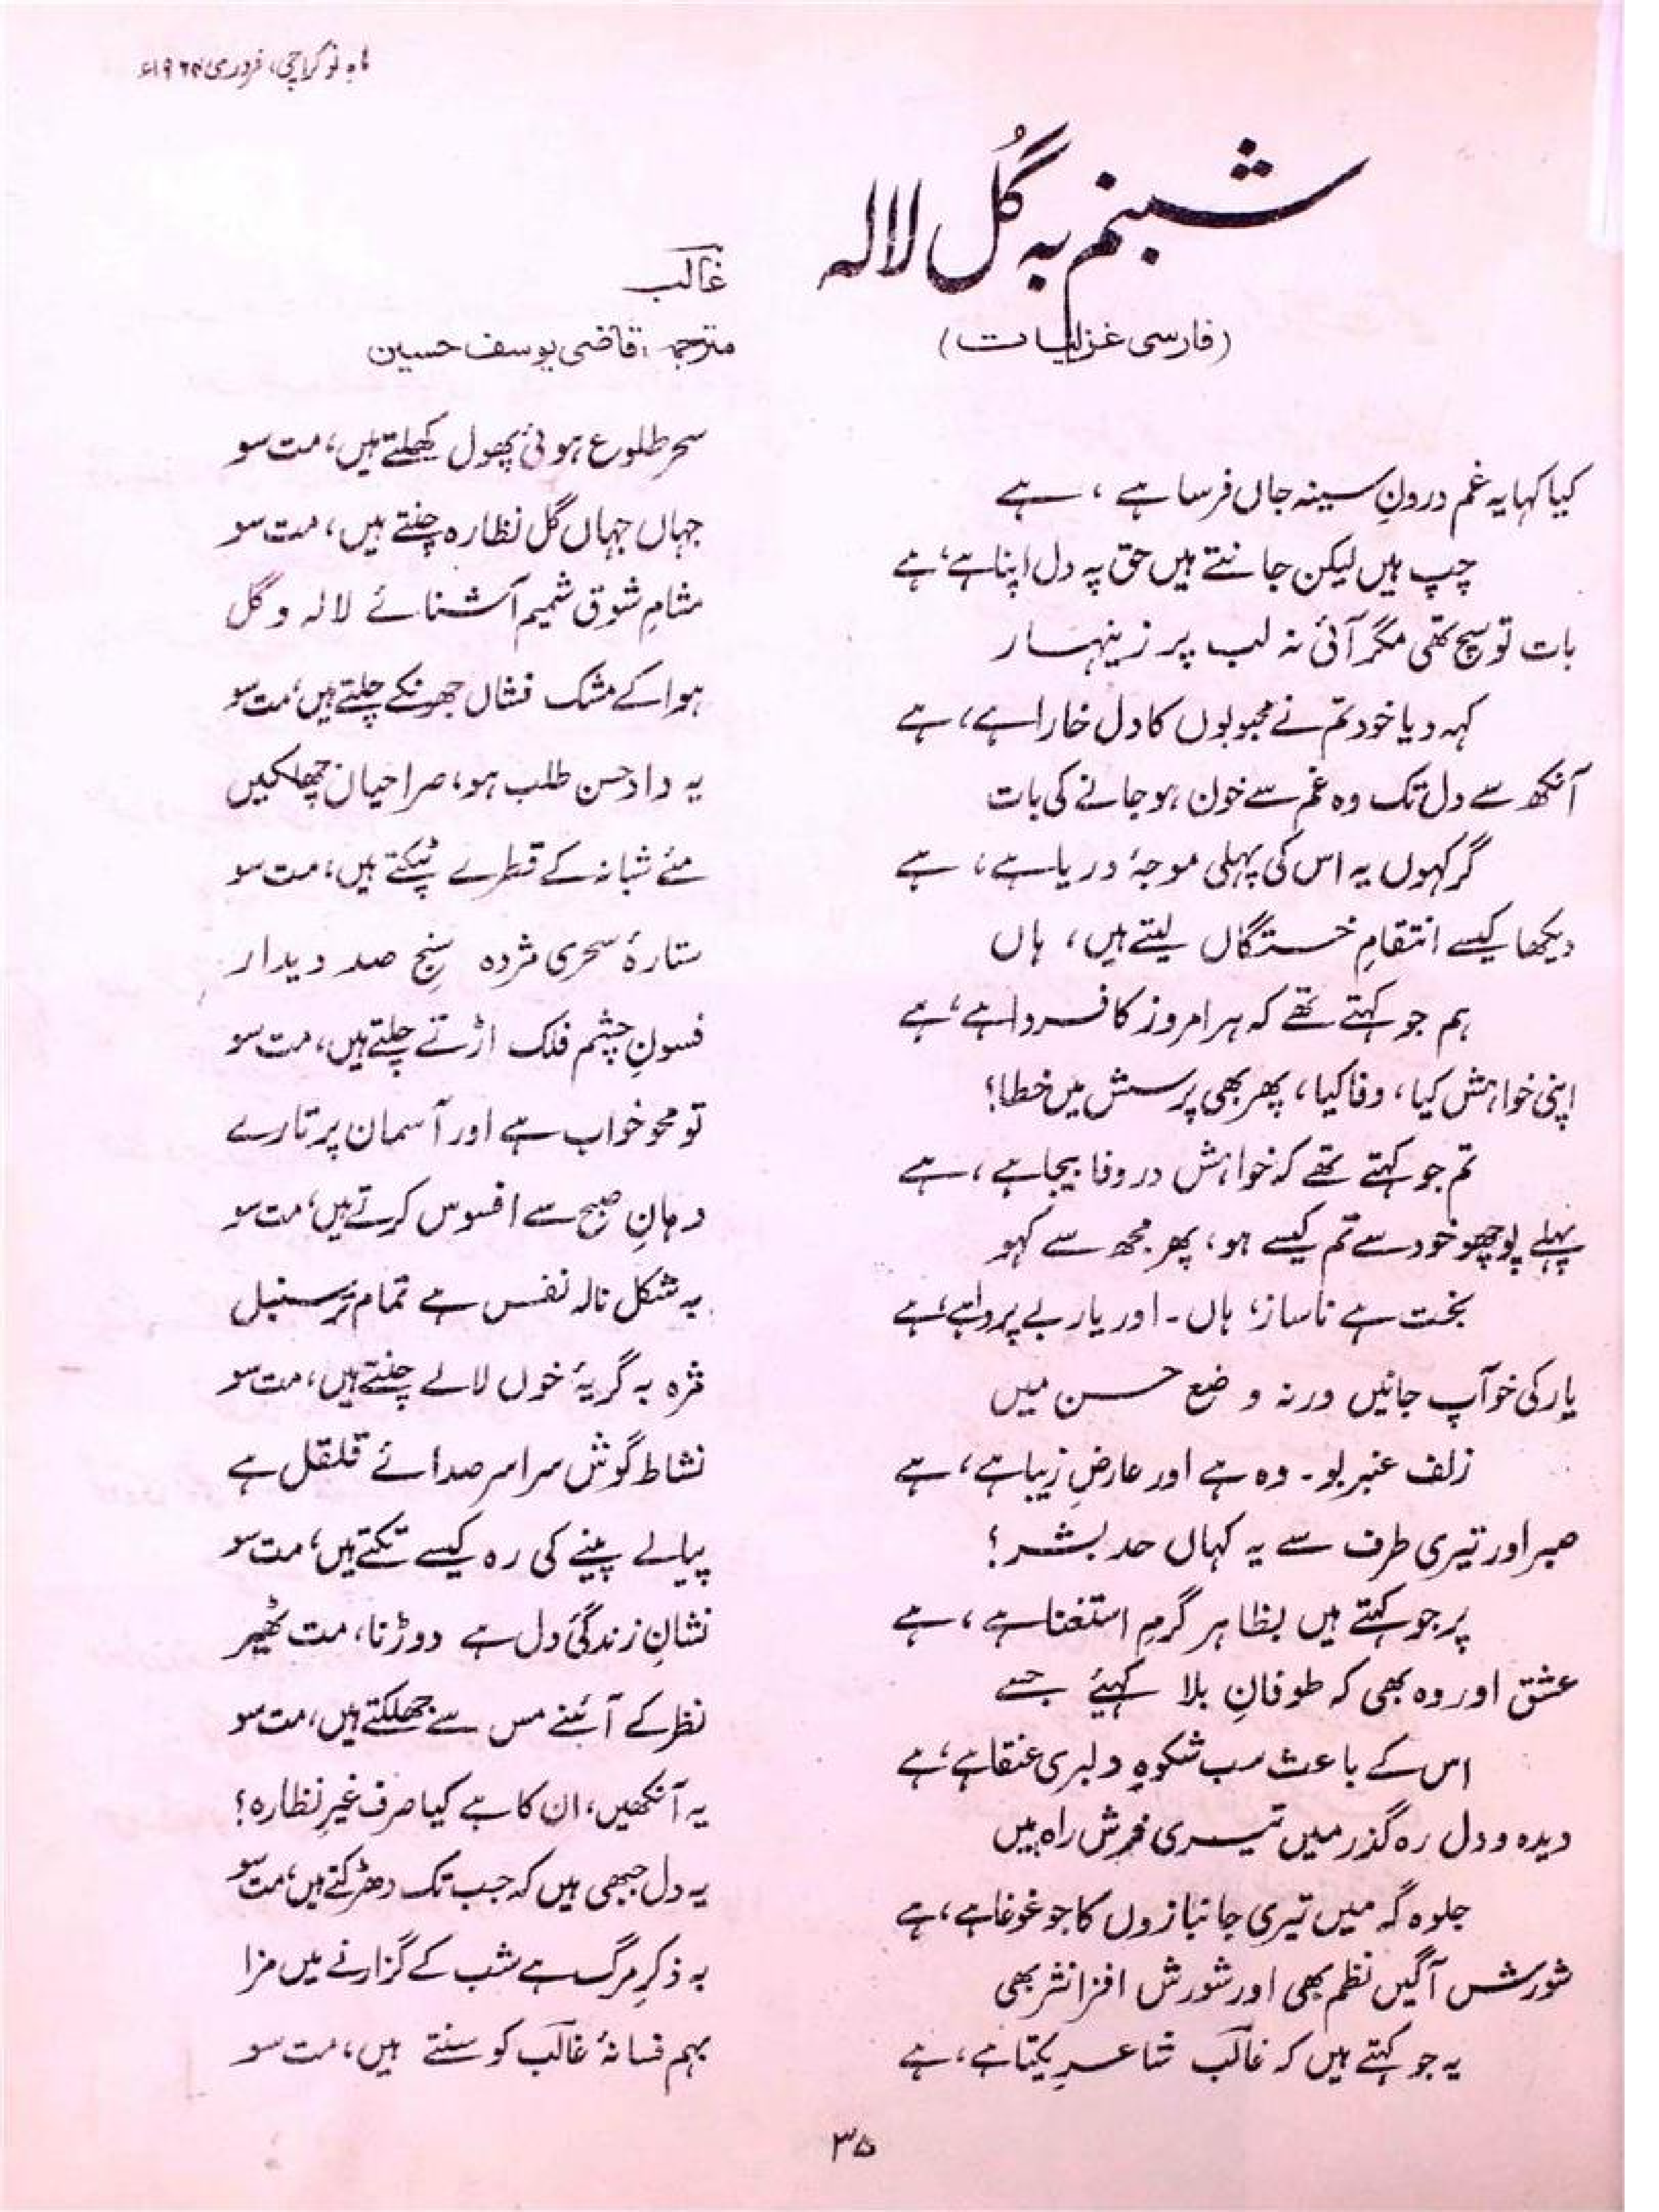 ماہِ نو کراچی، فروری ۱۹۶۴ء
شبنم بہ گُلِ لالہ
(فارسی غزلیات)
غالب
مترجمہ: قاضی یوسف حسین
کیا کہا یہ غم درونِ سینہ جاں فرسا ہے ، ہے
چپ ہیں لیکن جانتے ہیں حق پہ دل اپنا ہے، ہے
بات تو سچ تھی مگر آئی نہ لب پر زینہار
کہہ دیا خود تم نے محبوبوں کا دل خارا ہے، ہے
آنکھ سے دل تک وہ غم سے خون ہو جانے کی بات
گر کہوں یہ اس کی پہلی موجۂ دریا ہے، ہے
دیکھا کیسے انتقامِ خستگاں لیتے ہیں، ہاں
ہم جو کہتے تھے کہ ہر امروز کا فردا ہے، ہے
اپنی خواہش کیا، وفا کیا، پھر بھی پرسش میں خطا؟
تم جو کہتے تھے کہ خواہش در وفا بیجا ہے ، ہے
پہلے پوچھو خود سے تم کیسے ہو، پھر مجھ سے کہو
بخت ہے ناساز، ہاں۔ اور یار بے پروا ہے، ہے
یار کی خو آپ جانیں ورنہ وضعِ حسن میں
زلف عنبر بو۔ وہ ہے اور عارضِ زیبا ہے، ہے
صبر اور تیری طرف سے یہ کہاں حد بشر؟
پر جو کہتے ہیں بظاہر گرمِ استغنا ہے ، ہے
عشق اور وہ بھی کہ طوفانِ بلا کہیئے جسے
اس کے باعث سب شکوہِ دلبری عنقا ہے، ہے
دیدہ و دل رہ گذر میں تیری فرش راہ ہیں
جلوہ گہ میں تیری جانبازوں کا جو غوغا ہے، ہے
شورش آگیں نظم بھی اور شورش افزا نثر بھی
یہ جو کہتے ہیں کہ غالب شاعرِ یکتا ہے، ہے
سحر طلوع ہوئی پھول کھلتے ہیں، مت سو
جہاں جہاں گل نظارہ چنتے ہیں، مت سو
مشامِ شوق شمیم آشنائے لالہ و گل
ہوا کے مشک فشاں جھونکے چلتے ہیں، مت سو
یہ دادِ حسن طلب ہو، صراحیاں چھلکیں
مئے شبانہ کے قطرے ٹپکتے ہیں، مت سو
ستارۂ سحری مژدہ سنجِ صد دیدار
فسونِ چشم فلک اڑتے چلتے ہیں، مت سو
تو محوِ خواب ہے اور آسمان پر تارے
دہانِ صبح سے افسوس کرتے ہیں، مت سو
بہ شکل نالہ نفس ہے تمام پُر سنبل
مژہ بہ گریۂ خوں لالے چنتے ہیں، مت سو
نشاط گوش سراسر صدائے قلقل ہے
پیالے پینے کی رہ کیسے تکتے ہیں، مت سو
نشانِ زندگیٔ دل ہے دوڑنا، مت ٹھیر
نظر کے آئینے مس سے جھلکتے ہیں، مت سو
یہ آنکھیں، ان کا ہے کیا صرف غیرِ نظارہ؟
یہ دل جبھی ہیں کہ جب تک دھڑکتے ہیں، مت سو
بہ ذکرِ مرگ ہے شب کے گزارنے میں مزا
بہم فسانۂ غالب کو سنتے ہیں، مت سو
۳۵